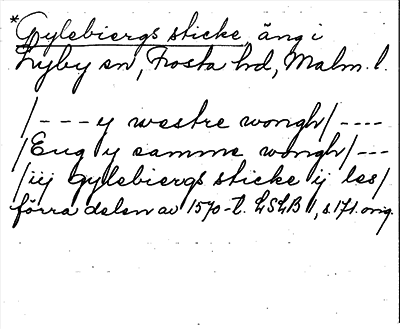 *Gylebiergs sticke, äng i
Lyby sn, Frosta hd, Malm. l.
/---y westre wongh/----
/Eng y samme wongh/---
/iij gylebiergs sticke ij les/
förra delen av 1570-t. LSLB 1, s. 171. orig.